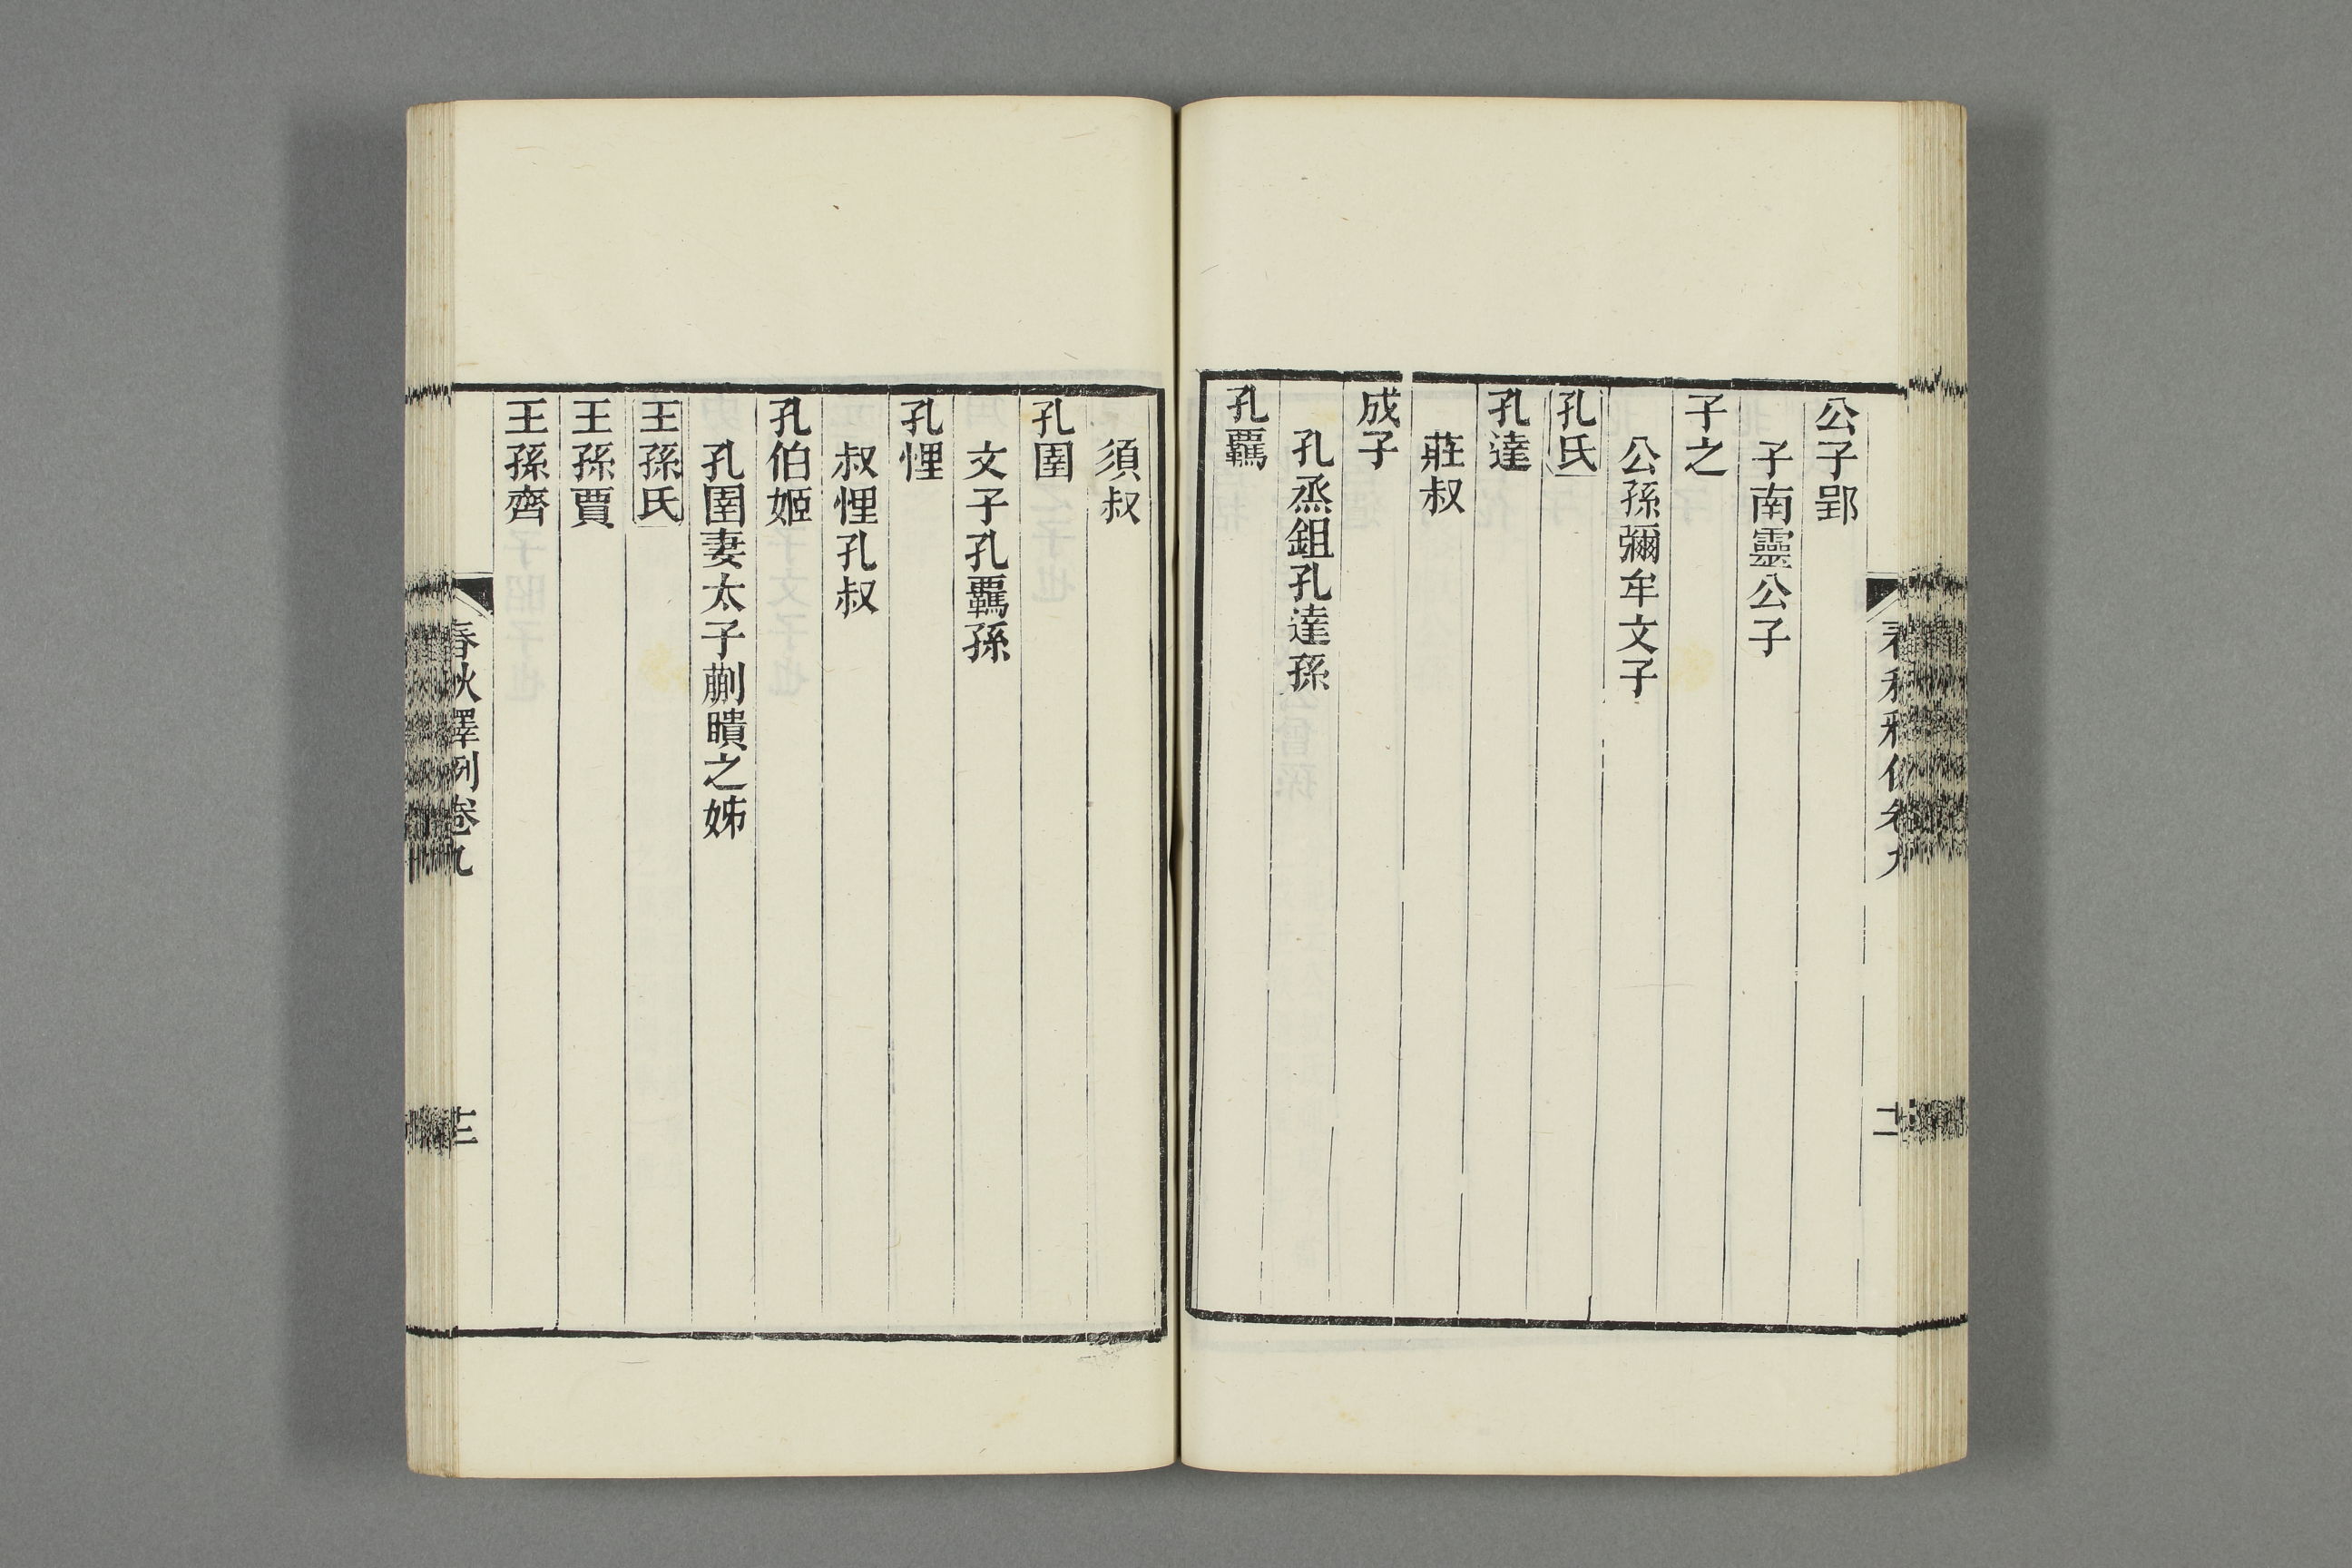 公子郢
子南靈公子
子之
公孫彌牟文子
孔氏
孔達
莊叔
成子
孔烝鉏孔達孫
孔羈
須叔
孔圉
文子孔羈孫
孔悝
叔悝孔叔
孔伯姬
孔圉妻太子蒯聵之姊
王孫氏
王孫賈
王孫齊
春秋釋例卷九